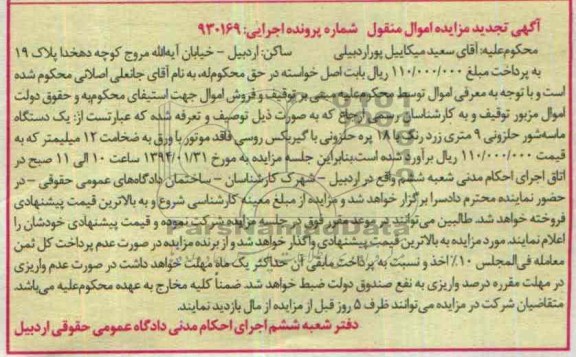 آگهی تجدید مزایده اموال منقول   شماره پرونده اجرایی: ۹۳۰۱۶۹
محکوم‌علیه: آقای سعید میکاییل پوراردبیلی   ساکن: اردبیل - خیابان آیه‌الله مروج کوچه دهخدا پلاک ۱۹
به پرداخت مبلغ ۱۱۰/۰۰۰/۰۰۰ ریال بابت اصل خواسته در حق محکوم‌له، به نام آقای جانعلی اصلانی محکوم شده
است و با توجه به معرفی اموال توسط محکوم‌علیه مبنی بر توقیف و فروش اموال جهت استیفای محکوم‌به و حقوق دولت
اموال مزبور توقیف و به کارشناسان مربوط ارجاع که به صورت ذیل توصیف و تعرفه شده که عبارتست از: یک دستگاه
ماسه‌شور حلزونی ۹ متری زرد رنگ با ۱۸ پره حلزونی با گیربکس روسی فاقد موتور با ورق به ضخامت ۱۲ میلیمتر که به
قیمت ۱۱۰/۰۰۰/۰۰۰ ریال برآورد شده است بنابراین جلسه مزایده به مورخ ۱۳۹۴/۰۱/۳۱ ساعت ۱۰ الی ۱۱ صبح در
اتاق اجرای احکام مدنی شعبه ششم واقع در اردبیل - شهرک کارشناسان - ساختمان دادگاه‌های عمومی حقوقی - در
حضور نماینده محترم دادسرا برگزار خواهد شد و مزایده از مبلغ معینه کارشناسی شروع و به بالاترین قیمت پیشنهادی
فروخته خواهد شد. طالبین می‌توانند در موعد مقرر فوق در جلسه مزایده شرکت نموده و قیمت پیشنهادی خودشان را
اعلام نمایند. مورد مزایده به بالاترین قیمت پیشنهادی واگذار خواهد شد و از برنده مزایده در صورت عدم پرداخت کل ثمن
معامله فی‌المجلس ۱۰٪ اخذ و نسبت به پرداخت مابقی آن حداکثر یک ماه مهلت خواهد داشت در صورت عدم واریزی
در مهلت مقرره درصد واریزی به نفع صندوق دولت ضبط خواهد شد. ضمناً کلیه مخارج به عهده محکوم‌علیه می‌باشد.
متقاضیان شرکت در مزایده می‌توانند ظرف ۵ روز قبل از مزایده از مال بازدید نمایند.
دفتر شعبه ششم اجرای احکام مدنی دادگاه عمومی حقوقی اردبیل
ParsNamadData